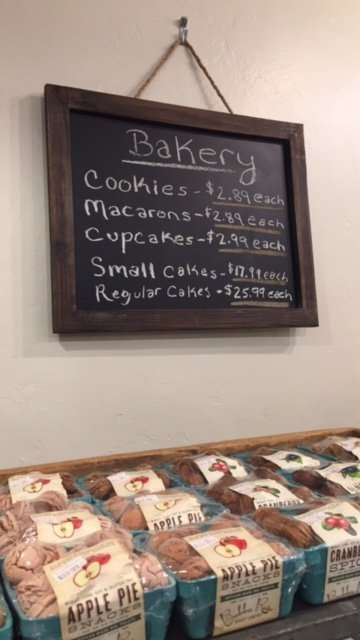 Bakery
Cookies - $2.89 each
Macarons - $2.89 each
Cupcakes - $2.99 each
Small Cakes - $17.99 each
Regular Cakes - $25.99 each
APPLE PIE
SNACKS
APPLE PIE
SNACKS
APPLE PIE
CRANBERRY
CRANBERRY
SPICE